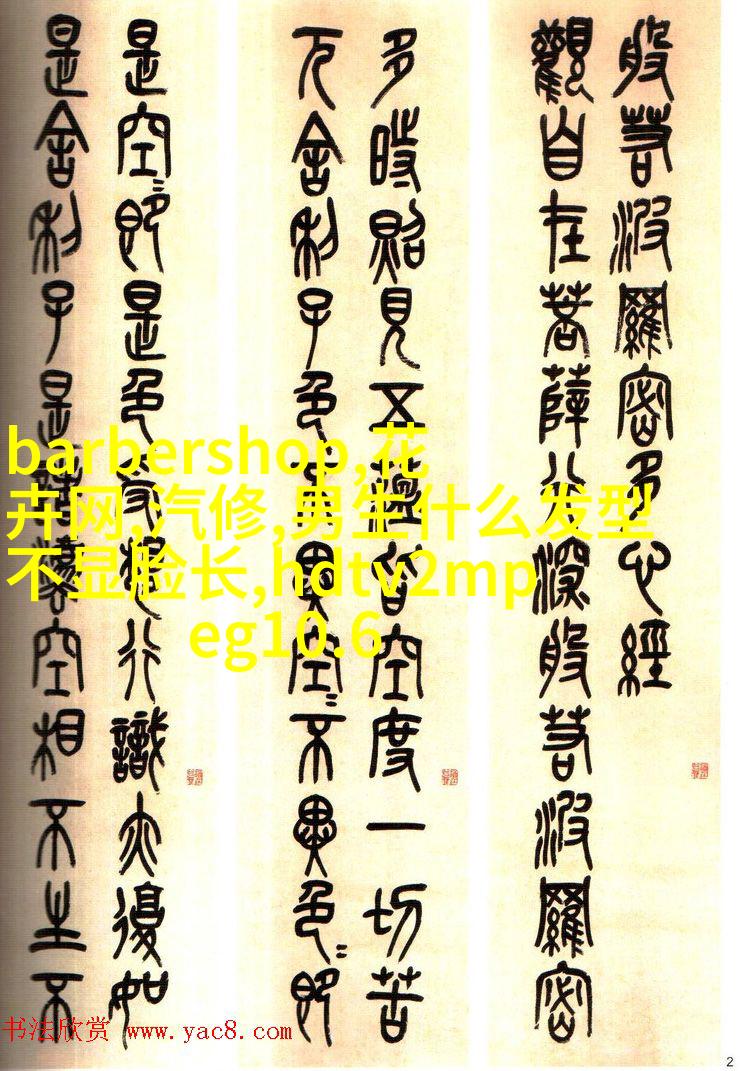 般若波羅密多心經
觀自在菩薩行深般若波羅密
多時照見五蘊皆空度一切苦
厄舍利子色不異空〻不異色〻即
是空〻即是色受想行識亦復如
是舍利子是諸法空相不生不
barbershop,花
卉网,汽修,男生什么发型
不显脸长,hdtv2mp
eg10.6
书法欣赏 www.yac8.com
2